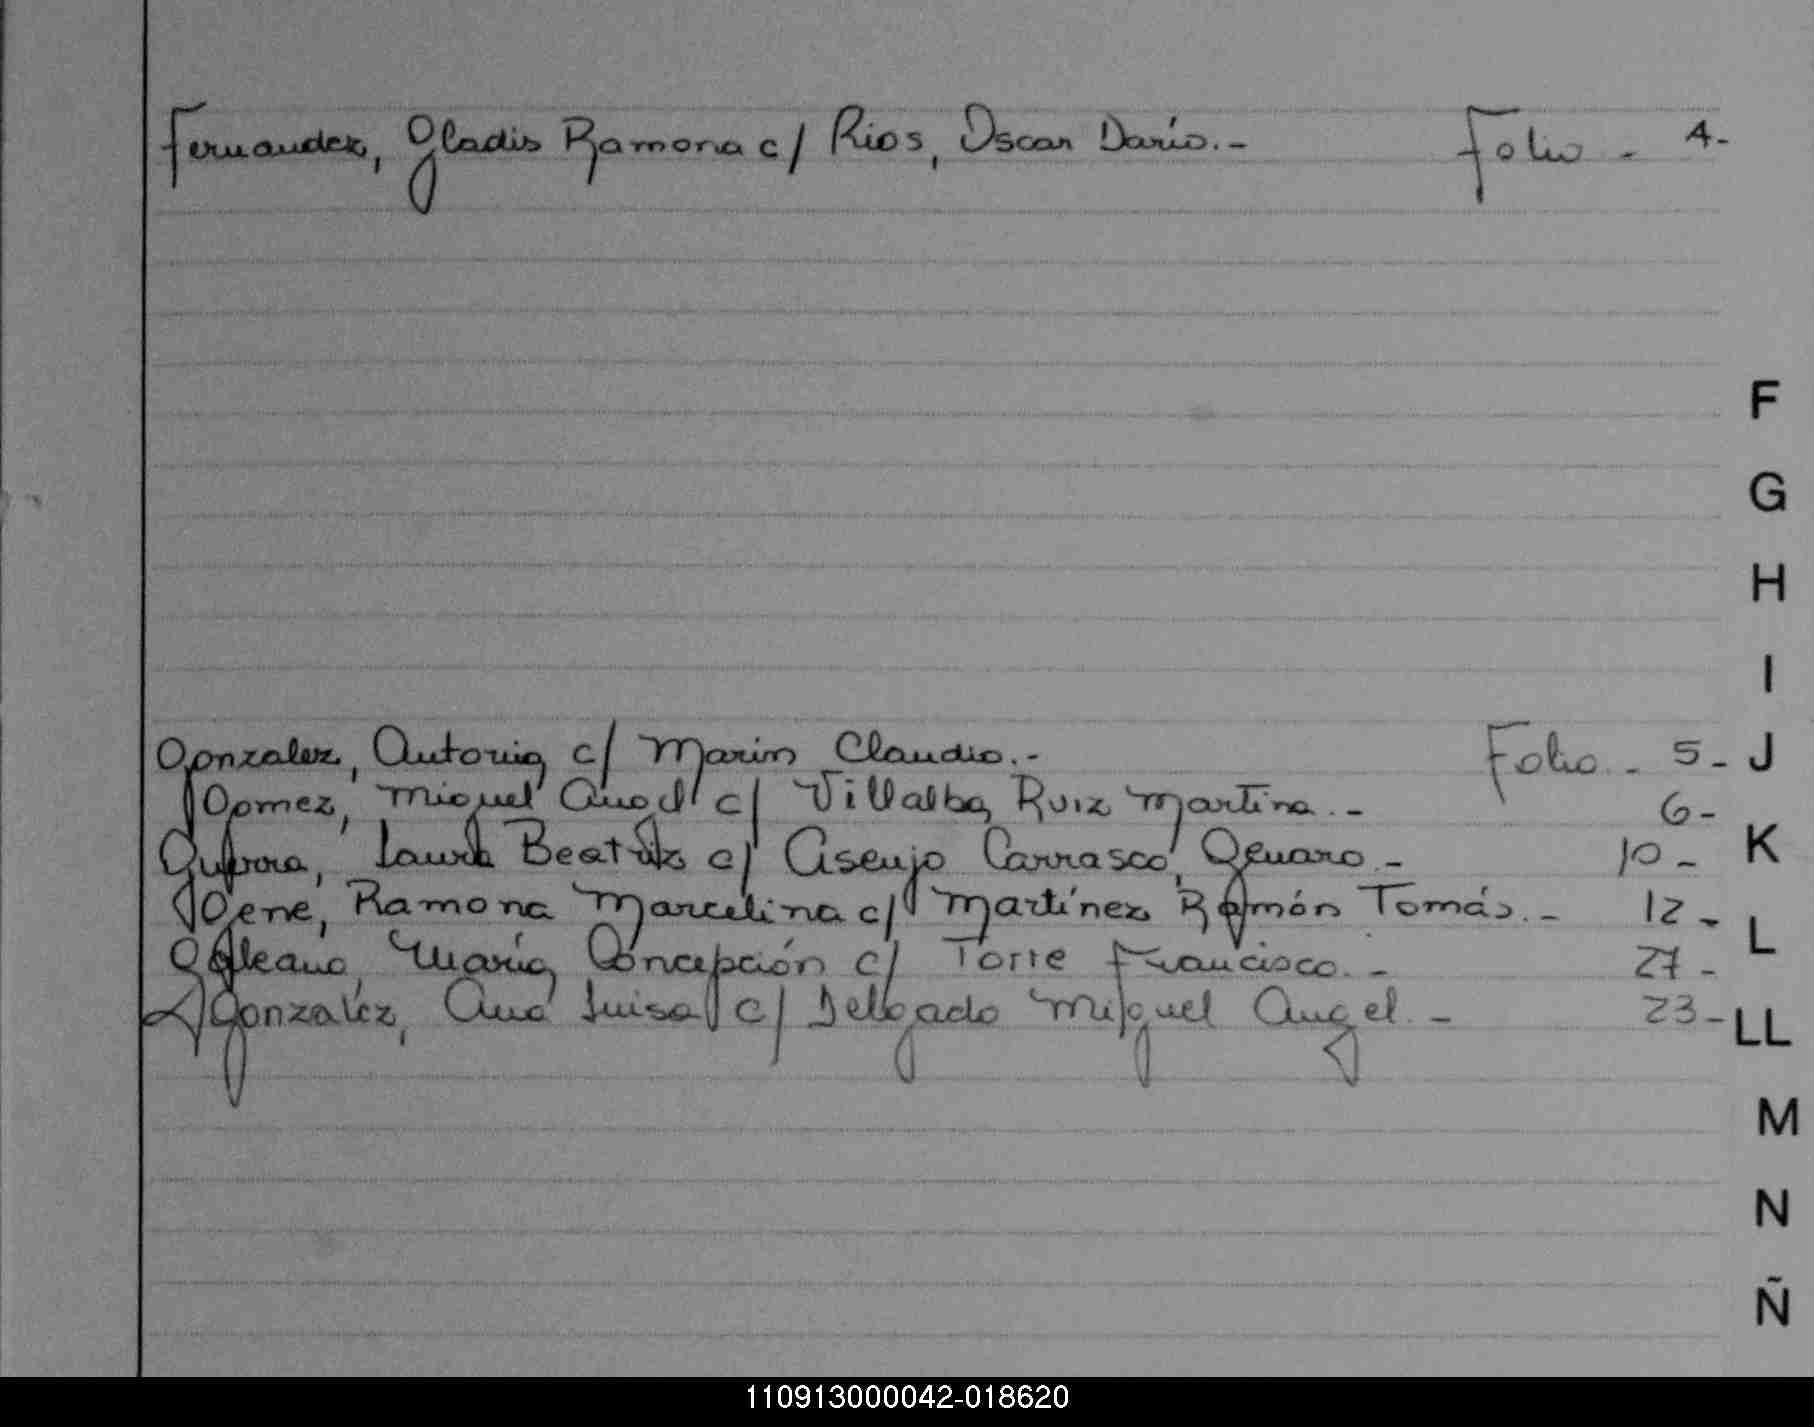 Fernandez, Gladis Ramona c/ Rios, Oscar Darío.- Folio - 4-
F
G
H
I
Gonzalez, Antonia c/ Marin Claudio.- Folio - 5-
J
Gomez, Miguel Angel c/ Villalba Ruiz Martina.- 6-
Guerra, Laura Beatriz c/ Asenjo Carrasco, Genaro.- 10-
K
Gene, Ramona Marcelina c/ Martínez Ramón Tomás.- 12-
L
Galeano, María Concepción c/ Torre Francisco.- 27-
Gonzalez, Ana Luisa c/ Delgado Miguel Angel.- 23-
LL
M
N
Ñ
110913000042-018620